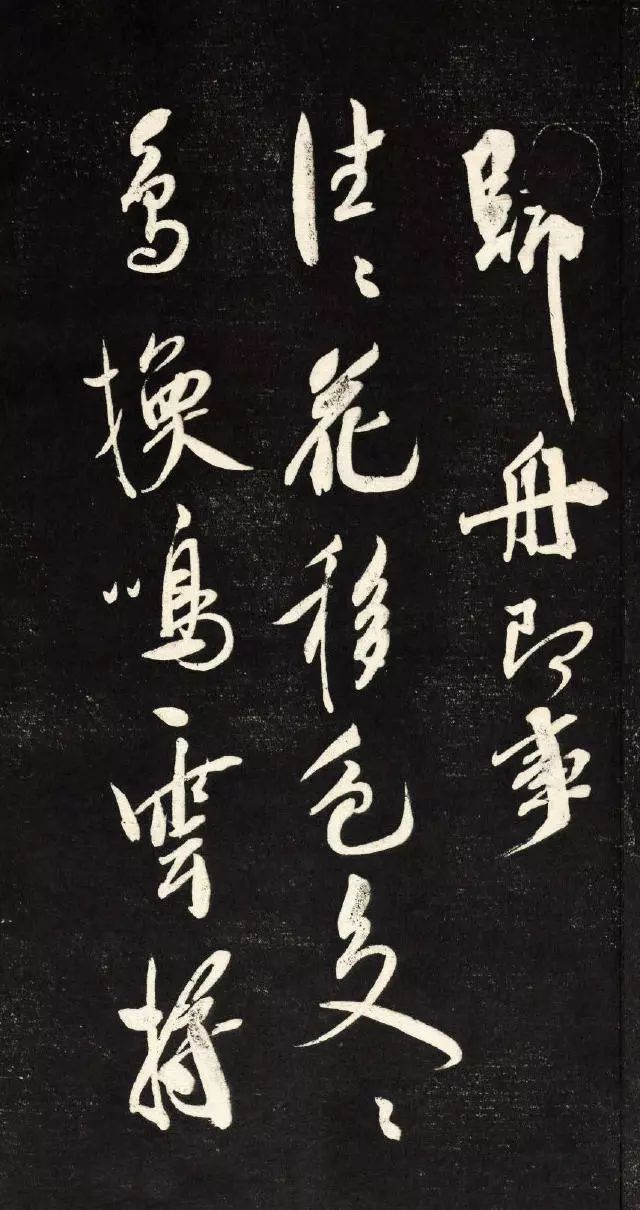 歸舟即事
往〻花移色处〻
鳥換鳴雲